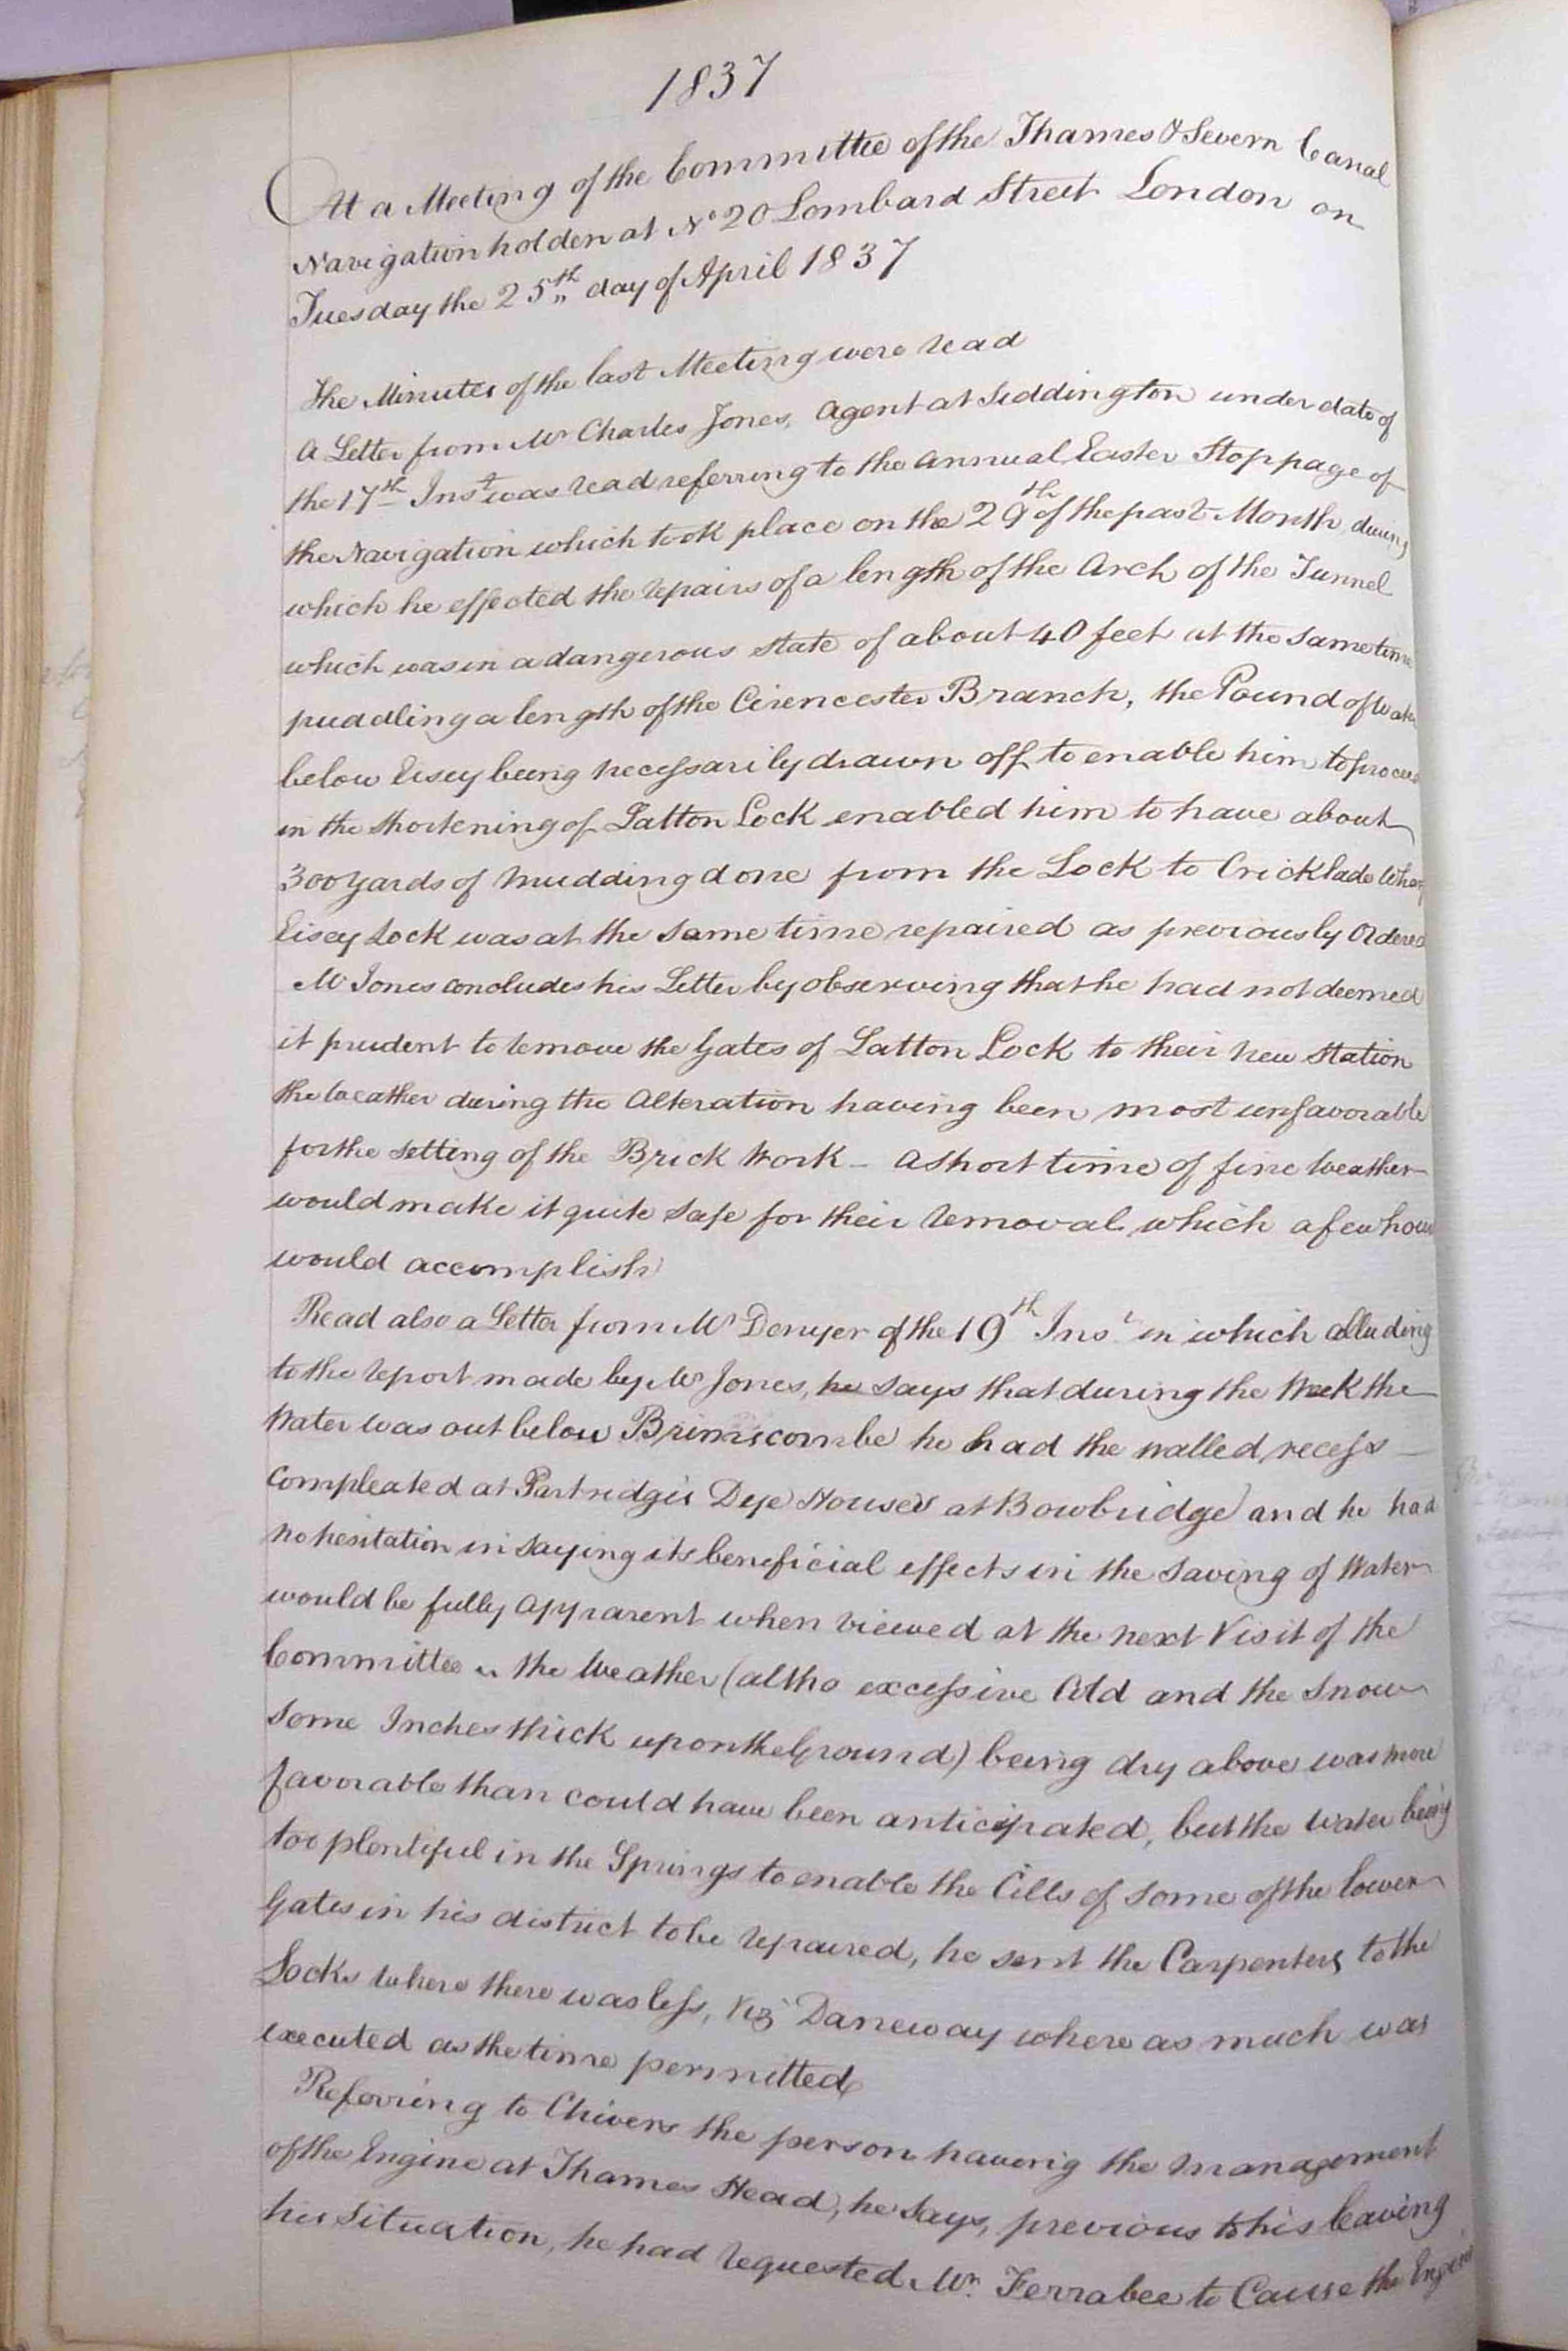 1837
At a Meeting of the Committee of the Thames & Severn Canal
Navigation holden at No 20 Lombard Street London on
Tuesday the 25th day of April 1837
The Minutes of the last Meeting were read
A Letter from Mr Charles Jones, Agent at Siddington under date of
the 17th Inst was read referring to the Annual Easter Stoppage of
the Navigation which took place on the 29th of the past Month, during
which he effected the repairs of a length of the Arch of the Tunnel
which was in a dangerous state of about 40 feet at the same time
puddling a length of the Cirencester Branch, the Pound of Water
below Eisey being necessarily drawn off to enable him to proceed
in the shortening of Latton Lock enabled him to have about
300 yards of Mudding done from the Lock to Cricklade Wharf
Eisey Lock was at the same time repaired as previously Ordered
Mr Jones concludes his Letter by observing that he had not deemed
it prudent to remove the Gates of Latton Lock to their new Station
the weather during the Alteration having been most unfavorable
for the setting of the Brick Work - a short time of fine weather
would make it quite safe for their removal which a few hours
would accomplish
Read also a Letter from Mr Denyer of the 19th Inst in which alluding
to the report made by Mr Jones, he says that during the Week the
Water was out below Brimscombe he had the walled recess
compleated at Partridge's Dye Houses at Bowbridge and he had
no hesitation in saying its beneficial effects in the saving of Water
would be fully apparent when viewed at the next Visit of the
Committee " the Weather (altho excessive Cold and the Snow
some Inches thick upon the Ground) being dry above was more
favorable than could have been anticipated, but the water being
too plentiful in the Springs to enable the Cills of some of the lower
Gates in his district to be repaired, he sent the Carpenters to the
Locks where there was less, Viz Daneway where as much was
executed as the time permitted
Referring to Chivers the person having the management
of the Engine at Thames Head, he says, previous to his leaving
his situation, he had requested Mr. Ferrabee to Cause the Engine